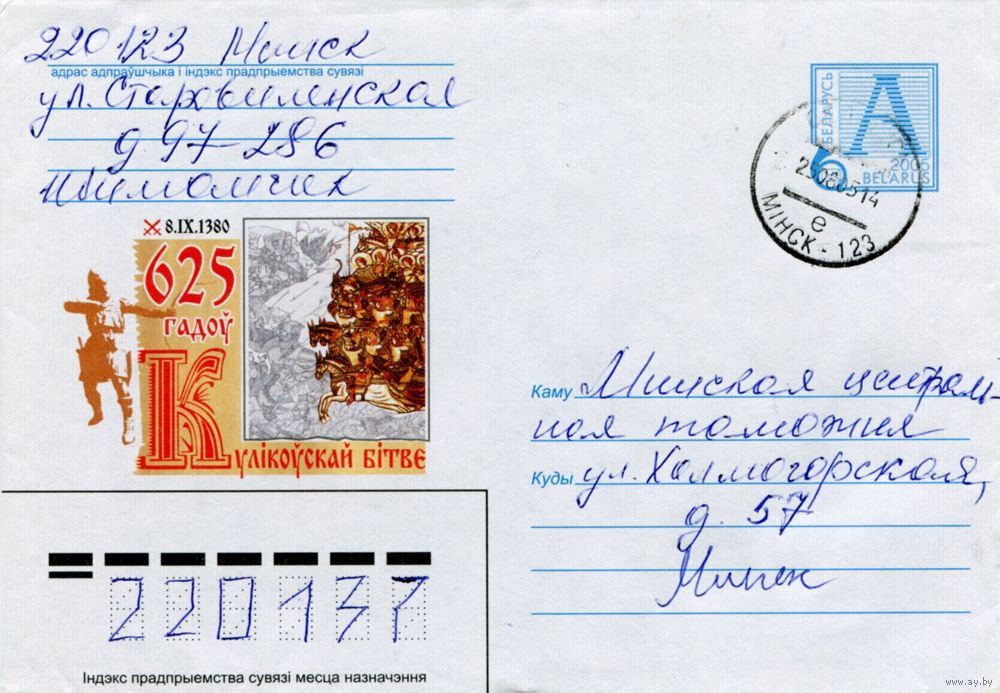 220123 Минск
адрас адпраўшчыка і індэкс прадпрыемства сувязі
ул. Старовиленская
д. 97-286
8.IX.1380
625
гадоў
Кулікоўскай бітве
БЕЛАРУСЬ
A
2005
BELARUS
25060514
е
МІНСК - 123
Каму Минская централь-
ная таможня
Куды ул. Холмогорская,
д. 57
Минск
220137
Індэкс прадпрыемства сувязі месца назначэння
www.ay.by